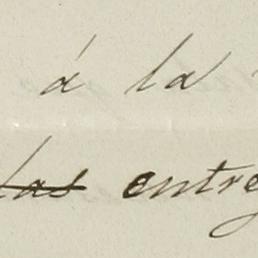 á la
las entre